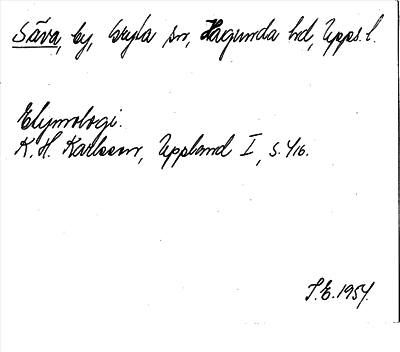 Säva, by, Gryta sn, Hagunda hd, Upps. l.
Etymologi.
K. H. Karlsson, Uppland I, s. 416.
T.E. 1954.